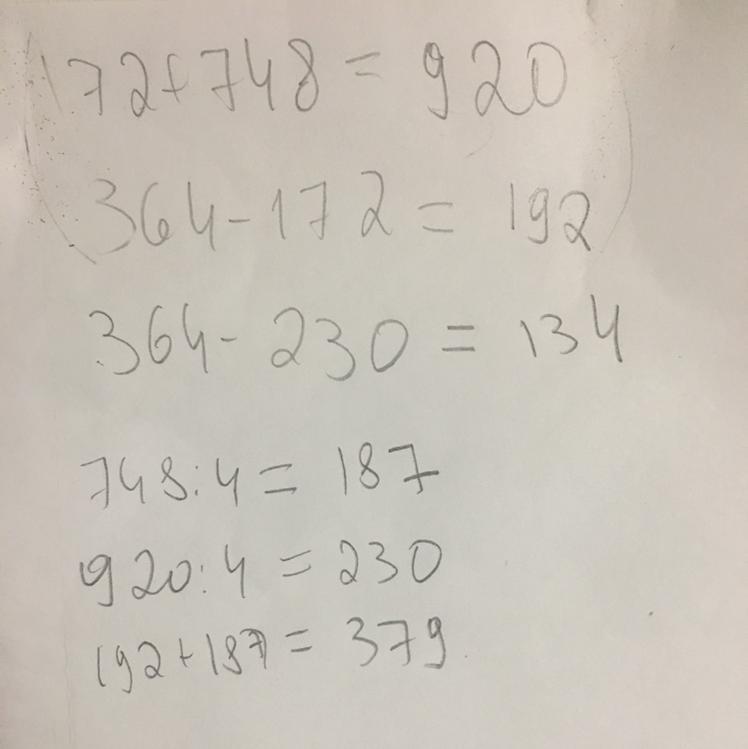 172+748=920
364-172=192
364-230=134
748:4=187
920:4=230
192+187=379